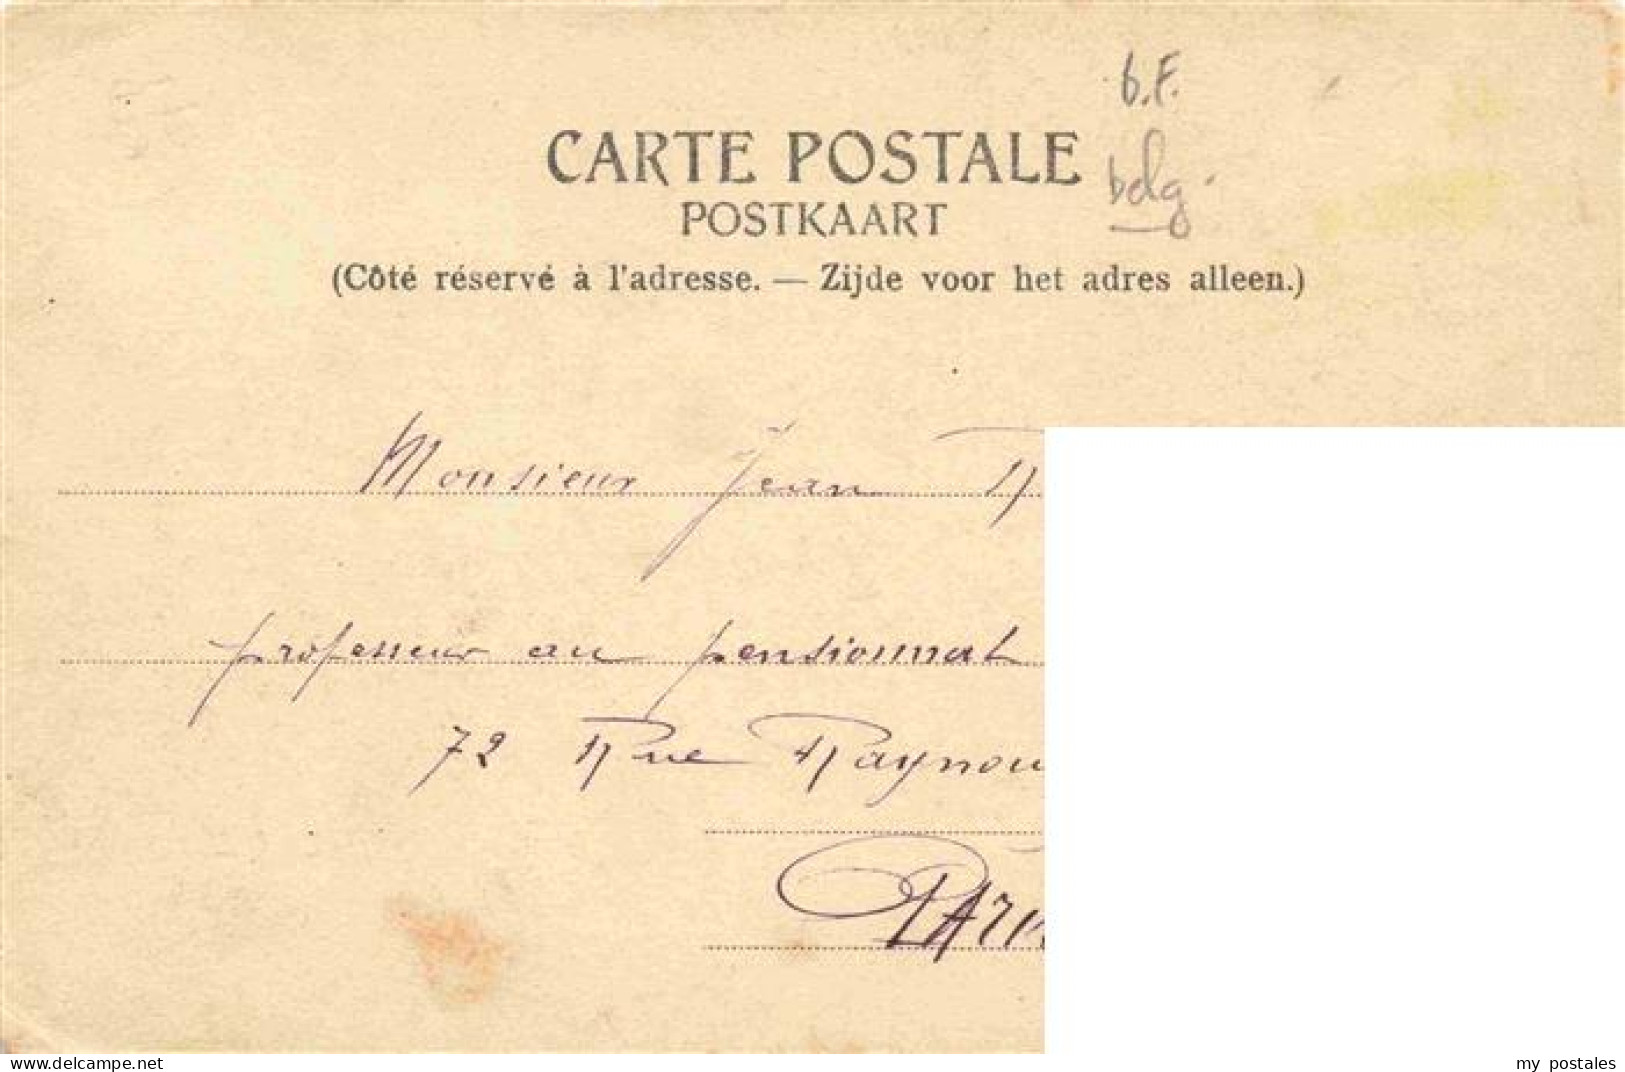 b.F.
CARTE POSTALE
belg
POSTKAART
(Côté réservé à l'adresse. — Zijde voor het adres alleen.)
Monsieur Jean
professeur au pensionnat
72 Rue
delcampe.net
my postales